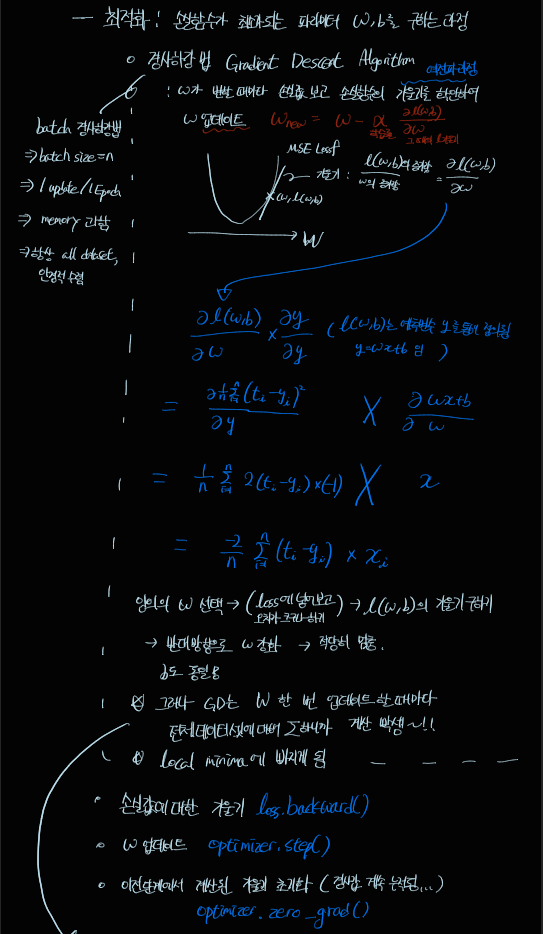 — 최적화 : 손실함수가 최소가 되는 파라미터 W, b를 구하는 과정
• 경사하강법 Gradient Descent Algorithm
역전파과정
: W가 변할 때마다 손실값 보고 손실함수의 기울기를 확인하여
W 업데이트 W_new = W - α ∂l(w,b)/∂w
학습률
batch 경사하강법
⇒ batch size = n
⇒ 1 update / 1 Epoch
⇒ memory 과함
⇒ 항상 all dataset,
안정적 수렴
MSE Loss
w, l(w,b)
W
기울기 : l(w,b)의 증가량 / w의 증가량 = ∂l(w,b)/∂w
∂l(w,b)/∂w × ∂y/∂y ( l(w,b)는 예측변수 y를
y=wx+b 임 )
= ∂ 1/n Σ(t_i - y_i)² / ∂y × ∂wx+b / ∂w
= 1/n Σ 2(t_i - y_i) × (-1) × x
= -2/n Σ (t_i - y_i) × x_i
임의의 W 선택 → (loss에 넣어보고) → l(w,b)의 기울기 구하기
→ 반대방향으로 W 갱신 → 적당히 멈춤.
b도 동일
그러나 GD는 W 한 번 업데이트 할 때마다
전체 데이터셋에 대해 Σ하니까 계산 빡셈~!!
local minima에 빠지게 됨
• 손실값에 대한 기울기 loss.backward()
• W 업데이트 optimizer.step()
• 이전단계에서 계산된 기울기 초기화 ( 계속 누적됨...)
optimizer.zero_grad()